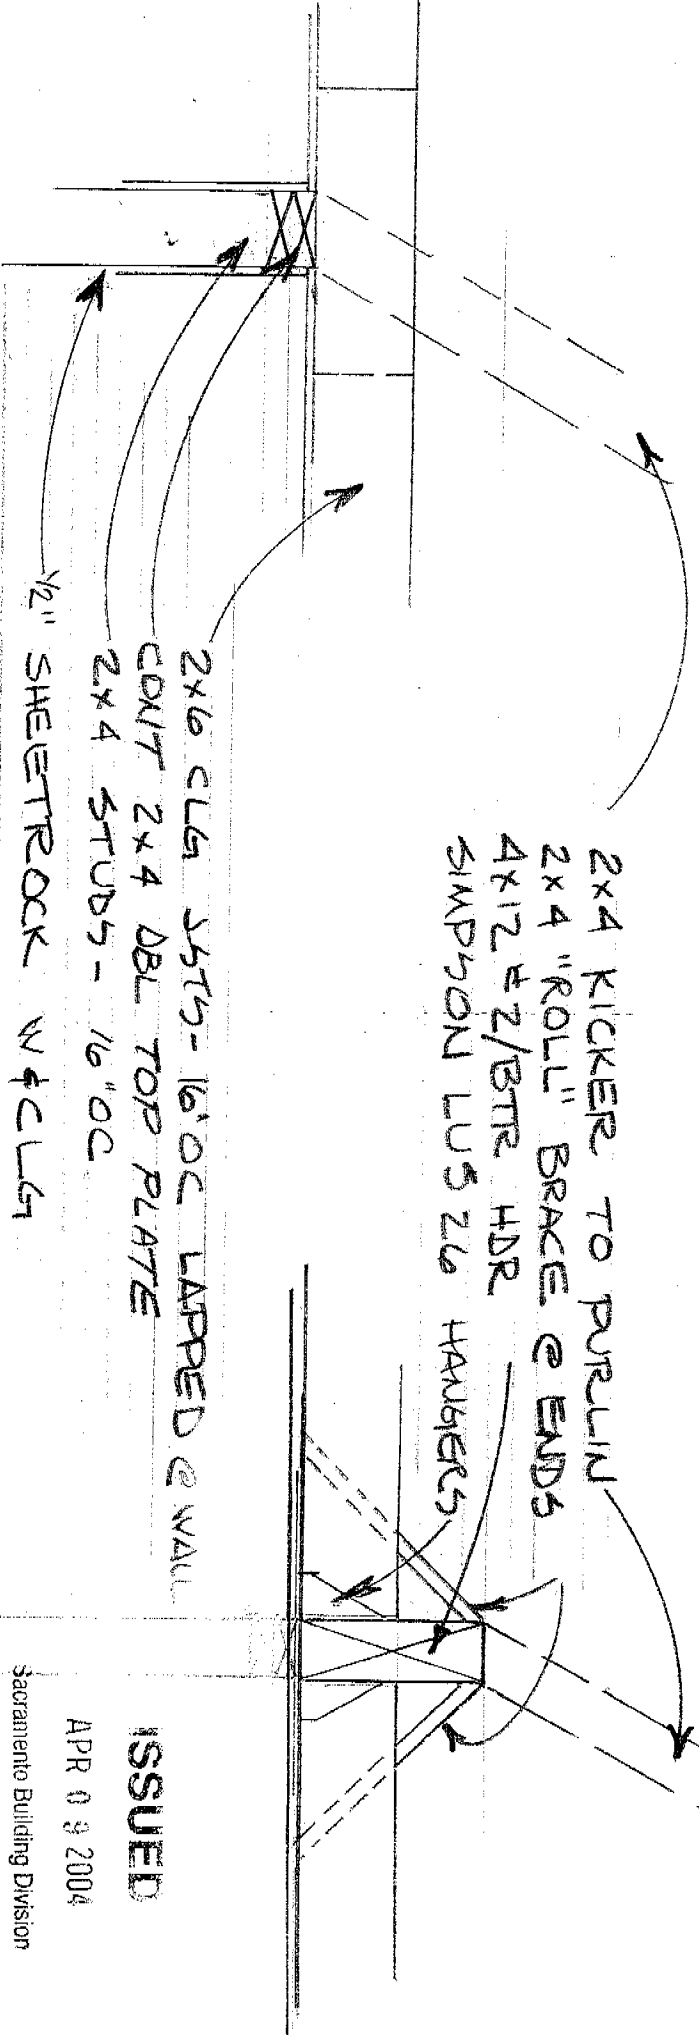 2x4 KICKER TO PURLIN
2x4 "ROLL" BRACE @ ENDS
4x12 #2/BTR HDR
SIMPSON LUS 26 HANGERS
2x6 CLG JSTS - 16" OC LAPPED @ WALL
CONT 2x4 DBL TOP PLATE
2x4 STUDS - 16" OC
1/2" SHEETROCK W & CLG
ISSUED
APR 09 2004
Sacramento Building Division